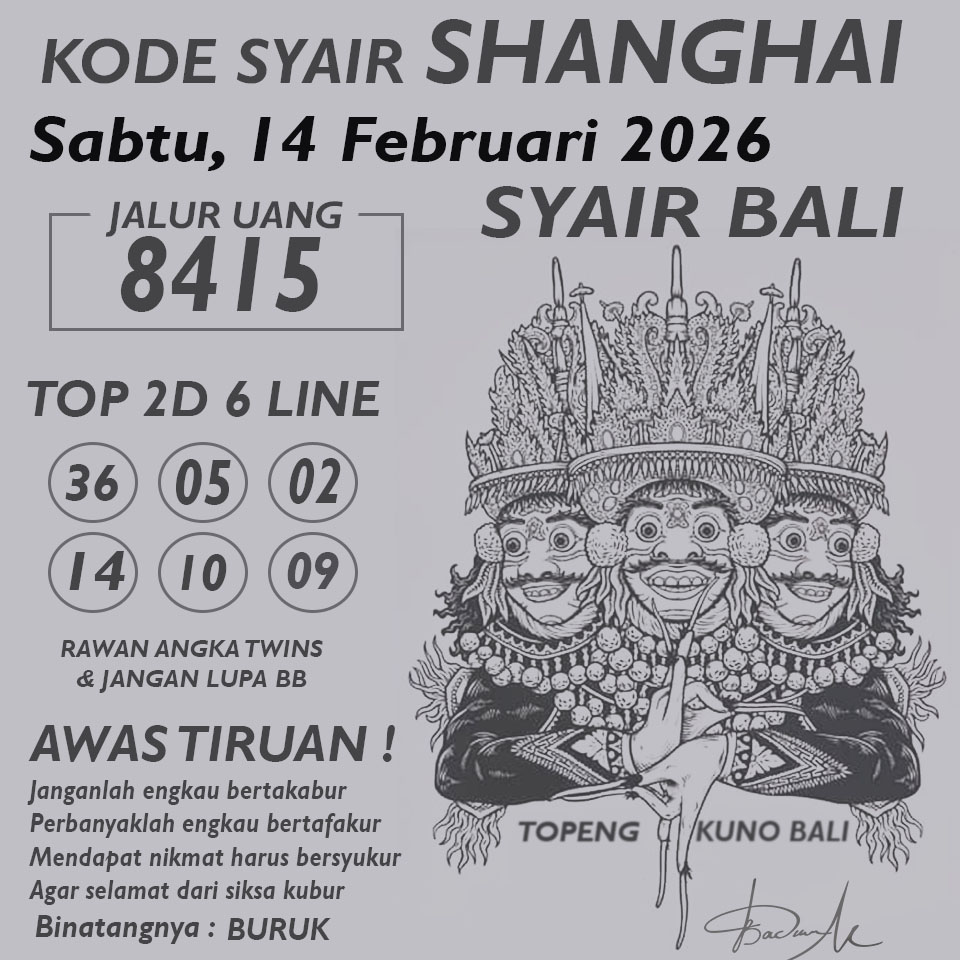 KODE SYAIR SHANGHAI
Sabtu, 14 Februari 2026
SYAIR BALI
JALUR UANG
8415
TOP 2D 6 LINE
36 05 02
14 10 09
RAWAN ANGKA TWINS
& JANGAN LUPA BB
AWAS TIRUAN !
Janganlah engkau bertakabur
Perbanyaklah engkau bertafakur
Mendapat nikmat harus bersyukur
Agar selamat dari siksa kubur
Binatangnya : BURUK
TOPENG KUNO BALI